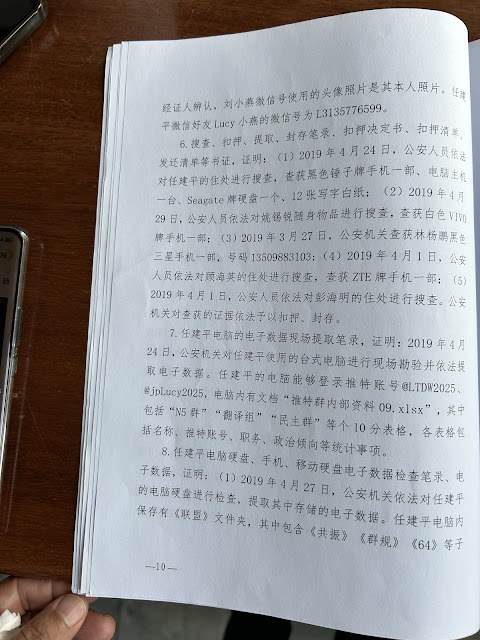 经证人辨认，刘小燕微信号使用的头像照片是其本人照片。任建
平微信好友 Lucy 小燕的微信号为 L3135776599。
6.搜查、扣押、提取、封存笔录、扣押决定书、扣押清单、
发还清单等书证，证明：（1）2019 年 4 月 24 日，公安人员依法
对任建平的住处进行搜查，查获黑色锤子牌手机一部、电脑主机
一台、Seagate 牌硬盘一个、12 张写字白纸；（2）2019 年 4 月
29 日，公安人员依法对姚锡锐随身物品进行搜查，查获白色 VIVO
牌手机一部；（3）2019 年 3 月 27 日，公安机关查获林杨鹏黑色
三星手机一部，号码 13509883103；（4）2019 年 4 月 1 日，公安
人员依法对顾海英的住处进行搜查，查获 ZTE 牌手机一部；（5）
2019 年 4 月 1 日，公安人员依法对彭海明的住处进行搜查。公安
机关对查获的证据依法予以扣押、封存。
7.任建平电脑的电子数据现场提取笔录，证明：2019 年 4 月
24 日，公安机关对任建平使用的台式电脑进行现场勘验并依法提
取电子数据。任建平的电脑能够登录推特账号@LTDW2025、
@jpLucy2025，电脑内有文档“推特群内部资料 09.xlsx”，其中
包括“N5 群”“翻译组”“民主群”等个 10 分表格，各表格包
括名称、推特账号、职务、政治倾向等统计事项。
8.任建平电脑硬盘、手机、移动硬盘电子数据检查笔录、电
子数据，证明：（1）2019 年 4 月 27 日，公安机关依法对任建平
的电脑硬盘进行检查，提取其中存储的电子数据。任建平电脑内
保存有《联盟》文件夹，其中包含《共振》《群规》《64》等子
—10—